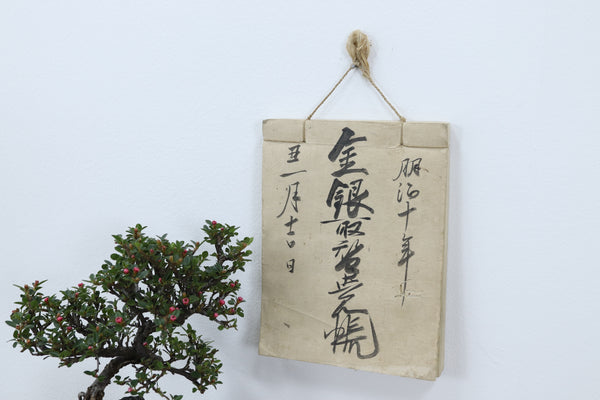 明治十年
金銀取替帳
丑一月吉日